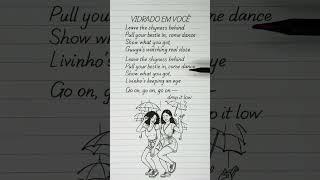 VIDRADO EM VOCÊ
Leave the shyness behind
Pull your bestie in, come dance
Show what you got,
Guuga's watching real close
Leave the shyness behind
Pull your bestie in, come dance
Show what you got,
Livinho's keeping an eye
Go on, go on, go on —
drop it low